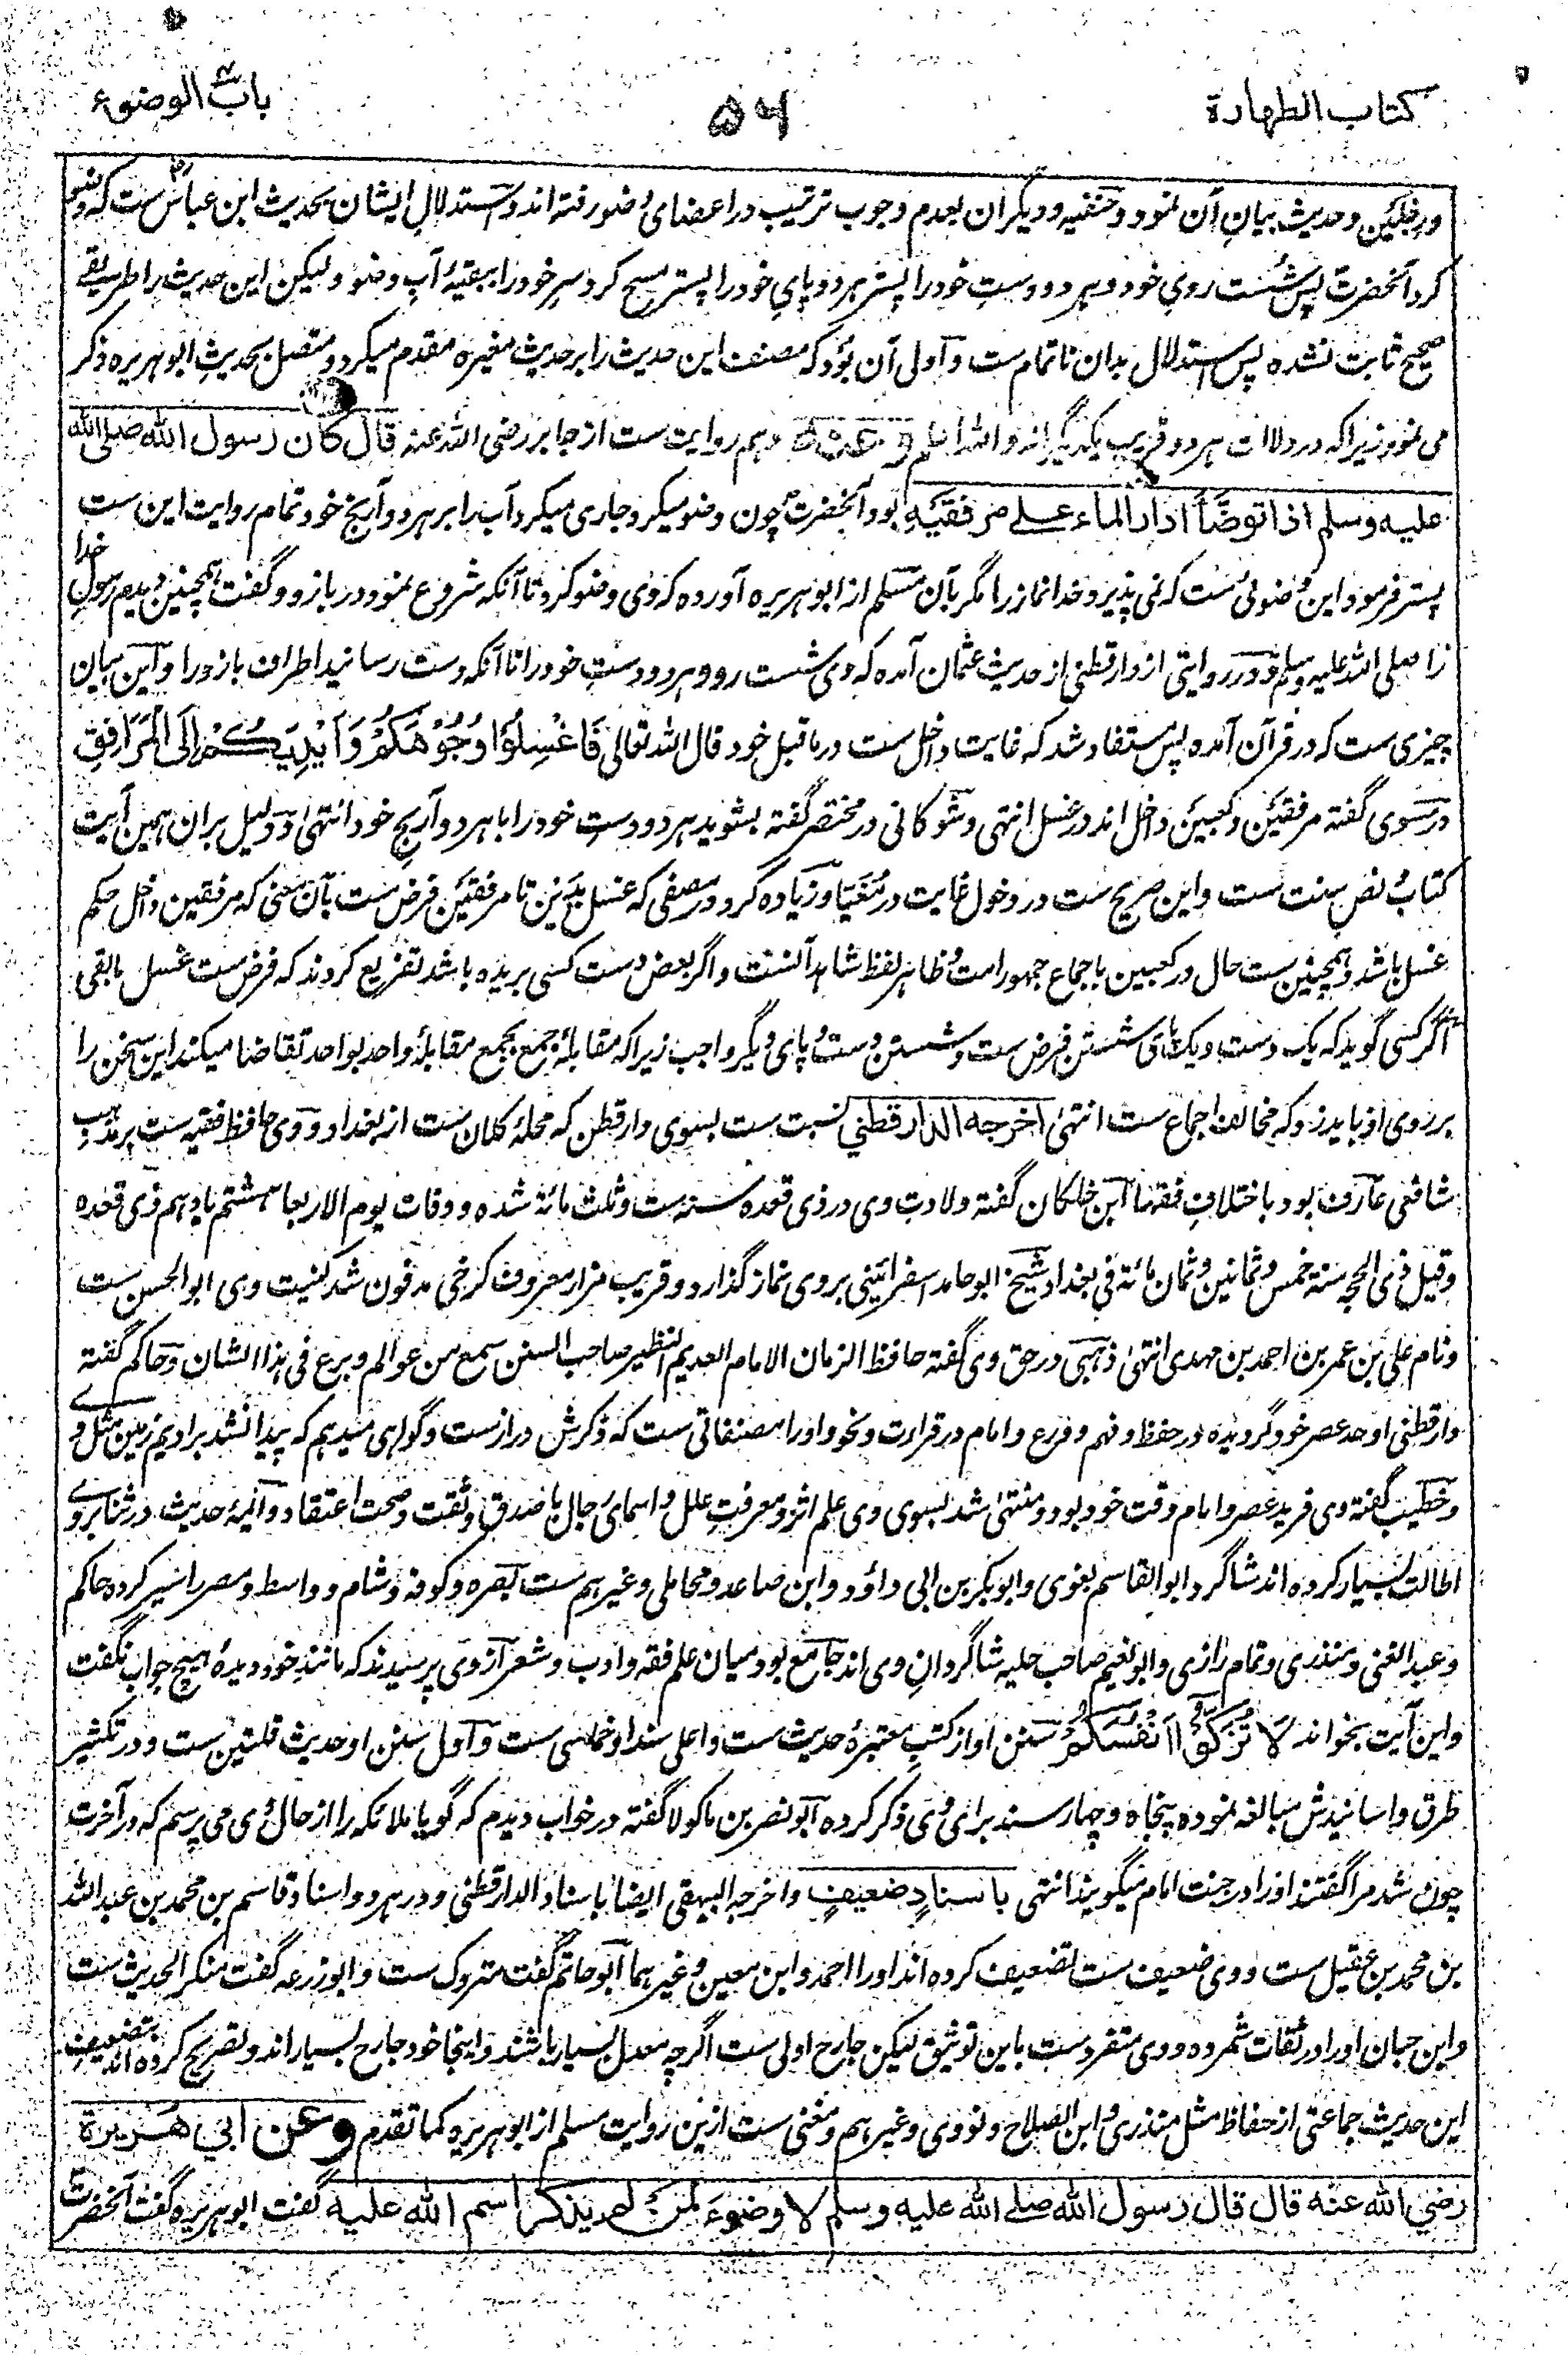 کتاب الطهارة
۵۶
باب الوضوء
ورجلین وحدیث بیان آن نمود و حنفیه و دیگران بعدم وجوب ترتیب در اعضای وضو رفته اند و استدلال ایشان بحدیث ابن عباس ست که وضو
کرد آنحضرت پس شست روی خود و هر دو دست خود را پستر هر دو پای خود را پستر مسح کرد سر خود را ببقیهٔ آب وضو و لیکن این حدیث را طریقے
صحیح ثابت نشده پس استدلال بدان ناتمام ست و اولی آن بود که مصنف این حدیث را بر حدیث مغیره مقدم میکرد و متصل بحدیث ابو هریره ذکر
می نمود زیرا که در دلالت هر دو قریب یکدیگر اند والله اعلم وعنه و هم روایت ست از جابر رضی الله عنه قال کان رسول الله صلی الله
علیه وسلم اذا توضأ ادار الماء علے مرفقیه بود آنحضرت چون وضو میکرد جاری میکرد آب را بر هر دو آرنج خود تمام روایت این ست
پستر فرمود این وضوئی ست که نمی پذیرد خدا نماز را مگر بآن مسلم از ابو هریره آورده که وی وضو کرد تا آنکه شروع نمود در بازو و گفت همچنین دیدم رسول خدا
را صلی الله علیه وسلم و در روایتی از دارقطنی از حدیث عثمان آمده که وی شست رو و هر دو دست خود را تا آنکه دست رسانید اطراف بازو را و این بیان
چیزی ست که در قرآن آمده پس مستفاد شد که غایت داخل ست در ما قبل خود قال الله تعالی فَاغْسِلُوا وُجُوْهَكُمْ وَاَيْدِيَكُمْ اِلَى الْمَرَافِقِ
در مسوی گفته مرفقین و کعبین داخل اند در غسل انتهی و شوکانی در مختصر گفته بشوید هر دو دست خود را با هر دو آرنج خود انتهی و دلیل بران همین آیت
کتاب و نص سنت ست و این صریح ست در دخول غایت در مغیا و زیاده کرد در مصفی که غسل یدین تا مرفقین فرض ست بآن معنی که مرفقین داخل حکم
غسل باشد و همچنین ست حال در کعبین باجماع جمهور امت و ظاهر لفظ شاهد آنست و اگر بعض دست کسی بریده باشد تفریع کردند که فرض ست غسل ما بقی
اگر کسی گوید که یک دست و یک پای شستن فرض ست و شستن دست و پای دیگر واجب زیرا که مقابلهٔ جمع بجمع مقابلهٔ واحد بواحد تقاضا میکند این سخن را
بر روی او باید زد که مخالف اجماع ست انتهی اخرجه الدارقطنی نسبت ست بسوی دارقطن که محلهٔ کلان ست از بغداد و وی حافظ فقیه ست بر مذهب
شافعی عارف بود باختلاف فقها ابن خلکان گفته ولادت وی در ذی قعده سنه ست و ثلث مائة شده و وفات یوم الاربعا هشتم یا دهم ذی قعده
و قیل ذی الحجه سنة خمس و ثمانین و ثمان مائة فی بغداد شیخ ابو حامد اسفرائینی بر وی نماز گذارد و قریب مزار معروف کرخی مدفون شد کنیت وی ابو الحسن ست
و نام علی بن عمر بن احمد بن مهدی انتهی ذهبی در حق وی گفته حافظ الزمان الامام العدیم النظیر صاحب السنن سمع من عوالم و برع فی هذا الشان و حاکم گفته
دارقطنی اوحد عصر خود گردیده در حفظ و فهم و ورع و امام در قراءت و نحو و او را مصنفاتی ست که ذکرش دراز ست و گواهی میدهم که پیدا نشد بر ادیم زمین مثل وے
و خطیب گفته وی فرید عصر و امام وقت خود بود و منتهی شد بسوی وی علم اثر و معرفت علل و اسمای رجال با صدق و ثقت و صحت اعتقاد و ائمهٔ حدیث در ثنا بر وے
اطالت بسیار کرده اند شاگرد ابو القاسم بغوی و ابو بکر بن ابی داؤد و ابن صاعد و محاملی و غیرهم ست بصره و کوفه و شام و واسط و مصر را سیر کرده حاکم
و عبد الغنی و منذری و تمام رازی و ابو نعیم صاحب حلیه شاگردان وی اند جامع بود میان علم فقه و ادب و شعر از وی پرسیدند که مانند خود دیدهٔ هیچ جواب نگفت
و این آیت بخواند لَا تُزَكُّوْا اَنْفُسَكُمْ سنن او از کتب معتبرهٔ حدیث ست و اعلی سند او خماسی ست و اول سنن او حدیث قلتین ست و در تکثیر
طرق و اسانیدش مبالغه نموده پنجاه و چهار سند برای وی ذکر کرده ابو نصر بن ماکولا گفته در خواب دیدم که گویا ملائکه را از حال وی می پرسم که در آخرت
چون شد مرا گفتند او را در جنت امام میگویند انتهی باسنادٍ ضعیفٍ و اخرجه البیهقی ایضا باسناد الدارقطنی و در هر دو اسناد قاسم بن محمد بن عبد الله
بن محمد بن عقیل ست و وی ضعیف ست تضعیف کرده اند او را احمد و ابن معین و غیر هما ابو حاتم گفت متروک ست و ابو زرعه گفت منکر الحدیث ست
و ابن حبان او را در ثقات شمرده و وی متفرد ست باین توثیق لیکن جارح اولی ست اگرچه معدل بسیار باشند و اینجا خود جارح بسیار اند و تصریح کرده اند بتضعیف
این حدیث جماعتی از حفاظ مثل منذری و ابن الصلاح و نووی و غیرهم و مغنی ست ازین روایت مسلم از ابو هریره کما تقدم وعن ابی هریرة
رضی الله عنه قال قال رسول الله صلے الله علیه وسلم لا وضوءَ لمن لم یذکر اسم الله علیه گفت ابو هریره گفت آنحضرت